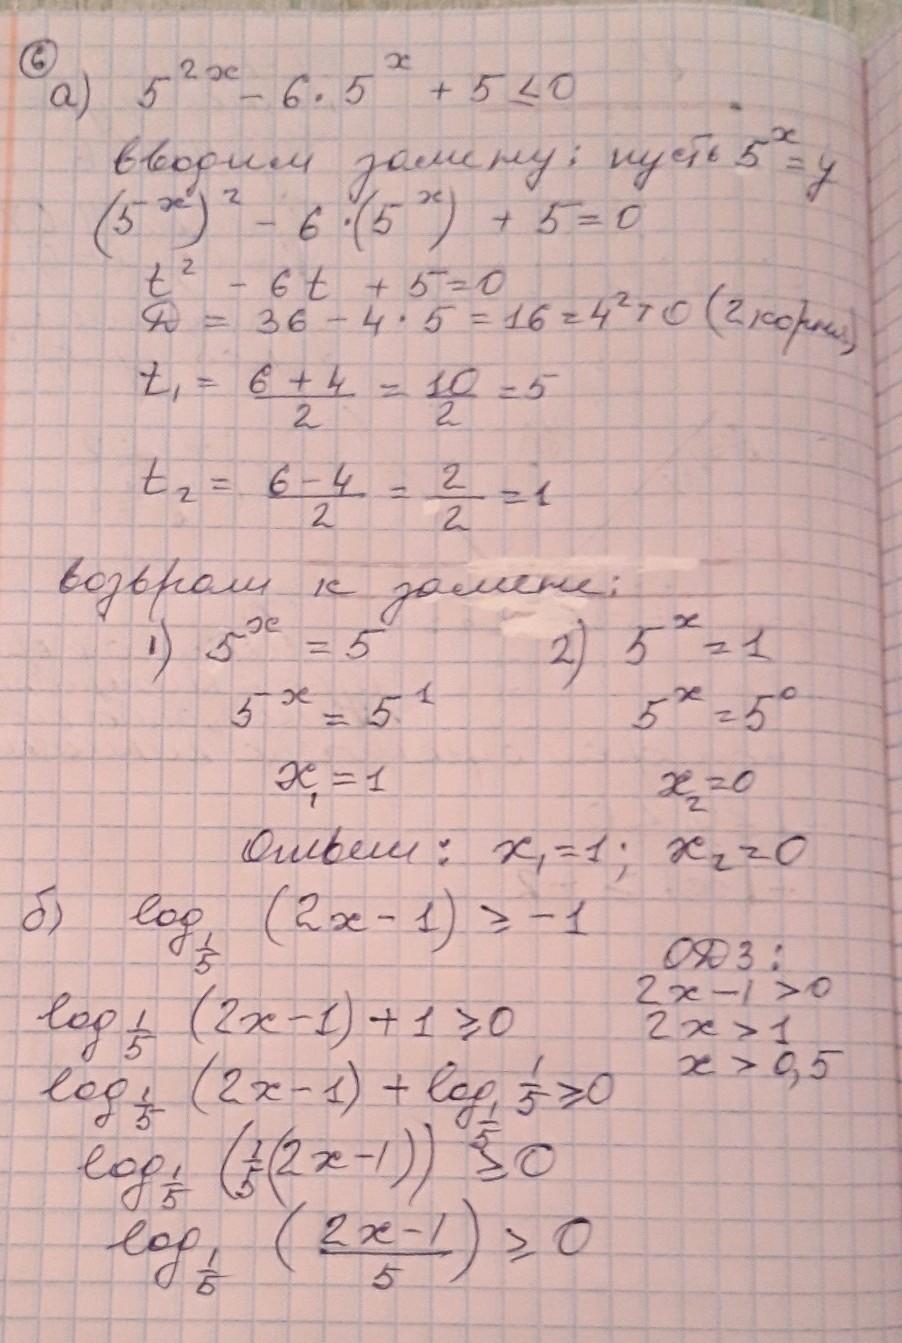 6
а) 5^{2x} - 6·5^x + 5 ≤ 0
вводим замену: пусть 5^x = y
(5^x)^2 - 6·(5^x) + 5 = 0
t^2 - 6t + 5 = 0
D = 36 - 4·5 = 16 = 4^2 > 0 (2 корня)
t_1 = \frac{6+4}{2} = \frac{10}{2} = 5
t_2 = \frac{6-4}{2} = \frac{2}{2} = 1
к замене:
1) 5^x = 5 2) 5^x = 1
5^x = 5^1 5^x = 5^0
x_1 = 1 x_2 = 0
Ответ: x_1 = 1; x_2 = 0
б) log_{\frac{1}{5}} (2x - 1) ≥ -1
ОДЗ:
2x - 1 > 0
2x > 1
x > 0,5
log_{\frac{1}{5}} (2x - 1) + 1 ≥ 0
log_{\frac{1}{5}} (2x - 1) + log_{\frac{1}{5}} \frac{1}{5} ≥ 0
log_{\frac{1}{5}} (\frac{1}{5}(2x - 1)) ≥ 0
log_{\frac{1}{5}} (\frac{2x-1}{5}) ≥ 0